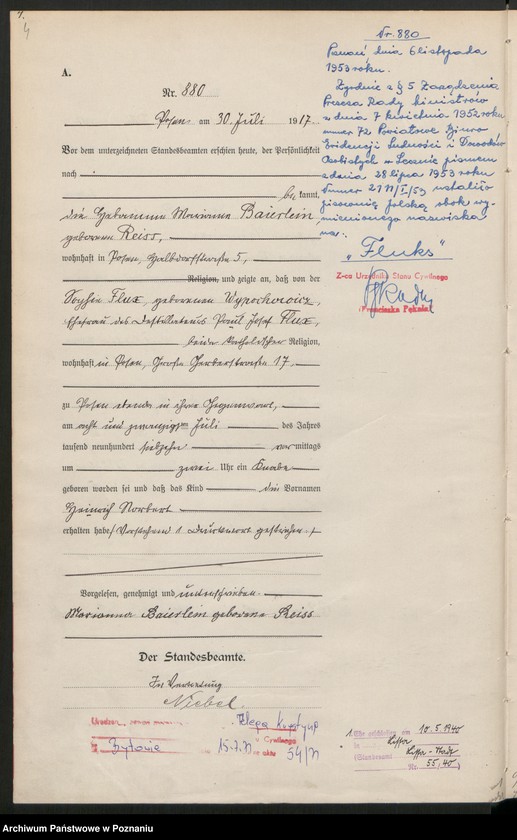 4
A.
Nr. 880
Posen am 30. Juli 1917.
Vor dem unterzeichneten Standesbeamten erschien heute, der Persönlichkeit
nach
bekannt,
die Hebamme Marianne Baierlein,
geborene Reiss,
wohnhaft in Posen, Halbdorfstraße 5,
Religion, und zeigte an, daß von der
Sophie Flux, geborenen
Ehefrau des Destillateurs Paul Josef Flux,
beide katholischer Religion,
wohnhaft in Posen, Große Gerberstraße 17,
zu Posen ebenda in ihrer Gegenwart,
am acht und zwanzigsten Juli des Jahres
tausend neunhundert siebzehn vormittags
um zwei Uhr ein Knabe
geboren worden sei und daß das Kind die Vornamen
Heinrich Norbert
erhalten habe. Vorstehend 1 Druckwort gestrichen.
Vorgelesen, genehmigt und unterschrieben.
Marianna Baierlein geborene Reiss
Der Standesbeamte.
In Vertretung
Niebel.
Nr. 880
Poznań dnia 6 listopada
1953 roku.
Zgodnie z § 5 Zarządzenia
Prezesa Rady Ministrów
z dnia 7 kwietnia 1952 roku
numer 72 Powiatowe Biuro
Ewidencji Ludności i Dowodów
Osobistych w Lesznie pismem
z dnia 28 lipca 1953 roku
numer ustaliło
pisownię polską obok wy-
mienionego nazwiska
na:
"Fluks"
Z-ca Urzędnika Stanu Cywilnego
Cywilnego
Bytowie 15.7.71 54/71
1 Ehe geschlossen am 10.5.1940
in Lissa
(Standesamt Lissa-Stadt
Nr. 55/40)
Archiwum Państwowe w Poznaniu